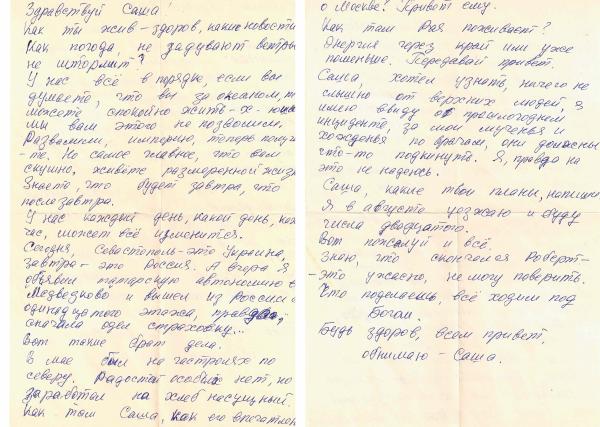 Здравствуй Саша!
Как ты жив-здоров, какие новости
Как погода, не задувают ветры
не штормит?
У нас всё в порядке, если вы
думаете, что вы за океаном, то
можете спокойно жить-х-
мы вам этого не позволим.
Развалили, империю, теперь
-те. Но самое главное, что вам
скушно, живёте размеренной жизн
Знаете, что будет завтра, что
послезавтра.
У нас каждый день, какой день, каж
час, может всё изменится.
Сегодня, Севастополь-это Украина,
завтра-это Россия. А вчера я
объявил татарскую автономию в
Медведково и вышел из России с
одинадцатого этажа, правда,
сначала одел страховку...
Вот такие брат дела.
В мае был на гастролях по
северу. Радостей особых нет, но
заработал на хлеб насущный.
Как там Саша, как его впечатлен
о Москве? Привет ему.
Как там Рая поживает?
Энергия через край или уже
поменьше. Передавай привет.
Саша, хотел узнать, ничего не
слышно от верхних людей, я
имею ввиду о прошлогоднем
инциденте, за мои мученья и
хожденья по врачам, они должны
что-то подкинуть. Я, правда на
это не надеюсь.
Саша, какие твои планы, напиши
Я в августе уезжаю и буду
числа двадцатого.
Вот пожалуй и всё.
Знаю, что скончался Роберт-
-это ужасно, не могу поверить.
Что поделаешь, всё ходим под
Богом.
Будь здоров, всем привет,
обнимаю - Саша.